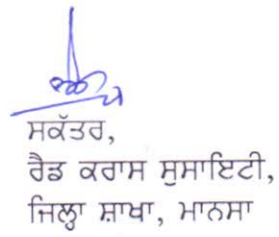 ਸਕੱਤਰ,
ਰੈਡ ਕਰਾਸ ਸੁਸਾਇਟੀ,
ਜਿਲ੍ਹਾ ਸ਼ਾਖਾ, ਮਾਨਸਾ